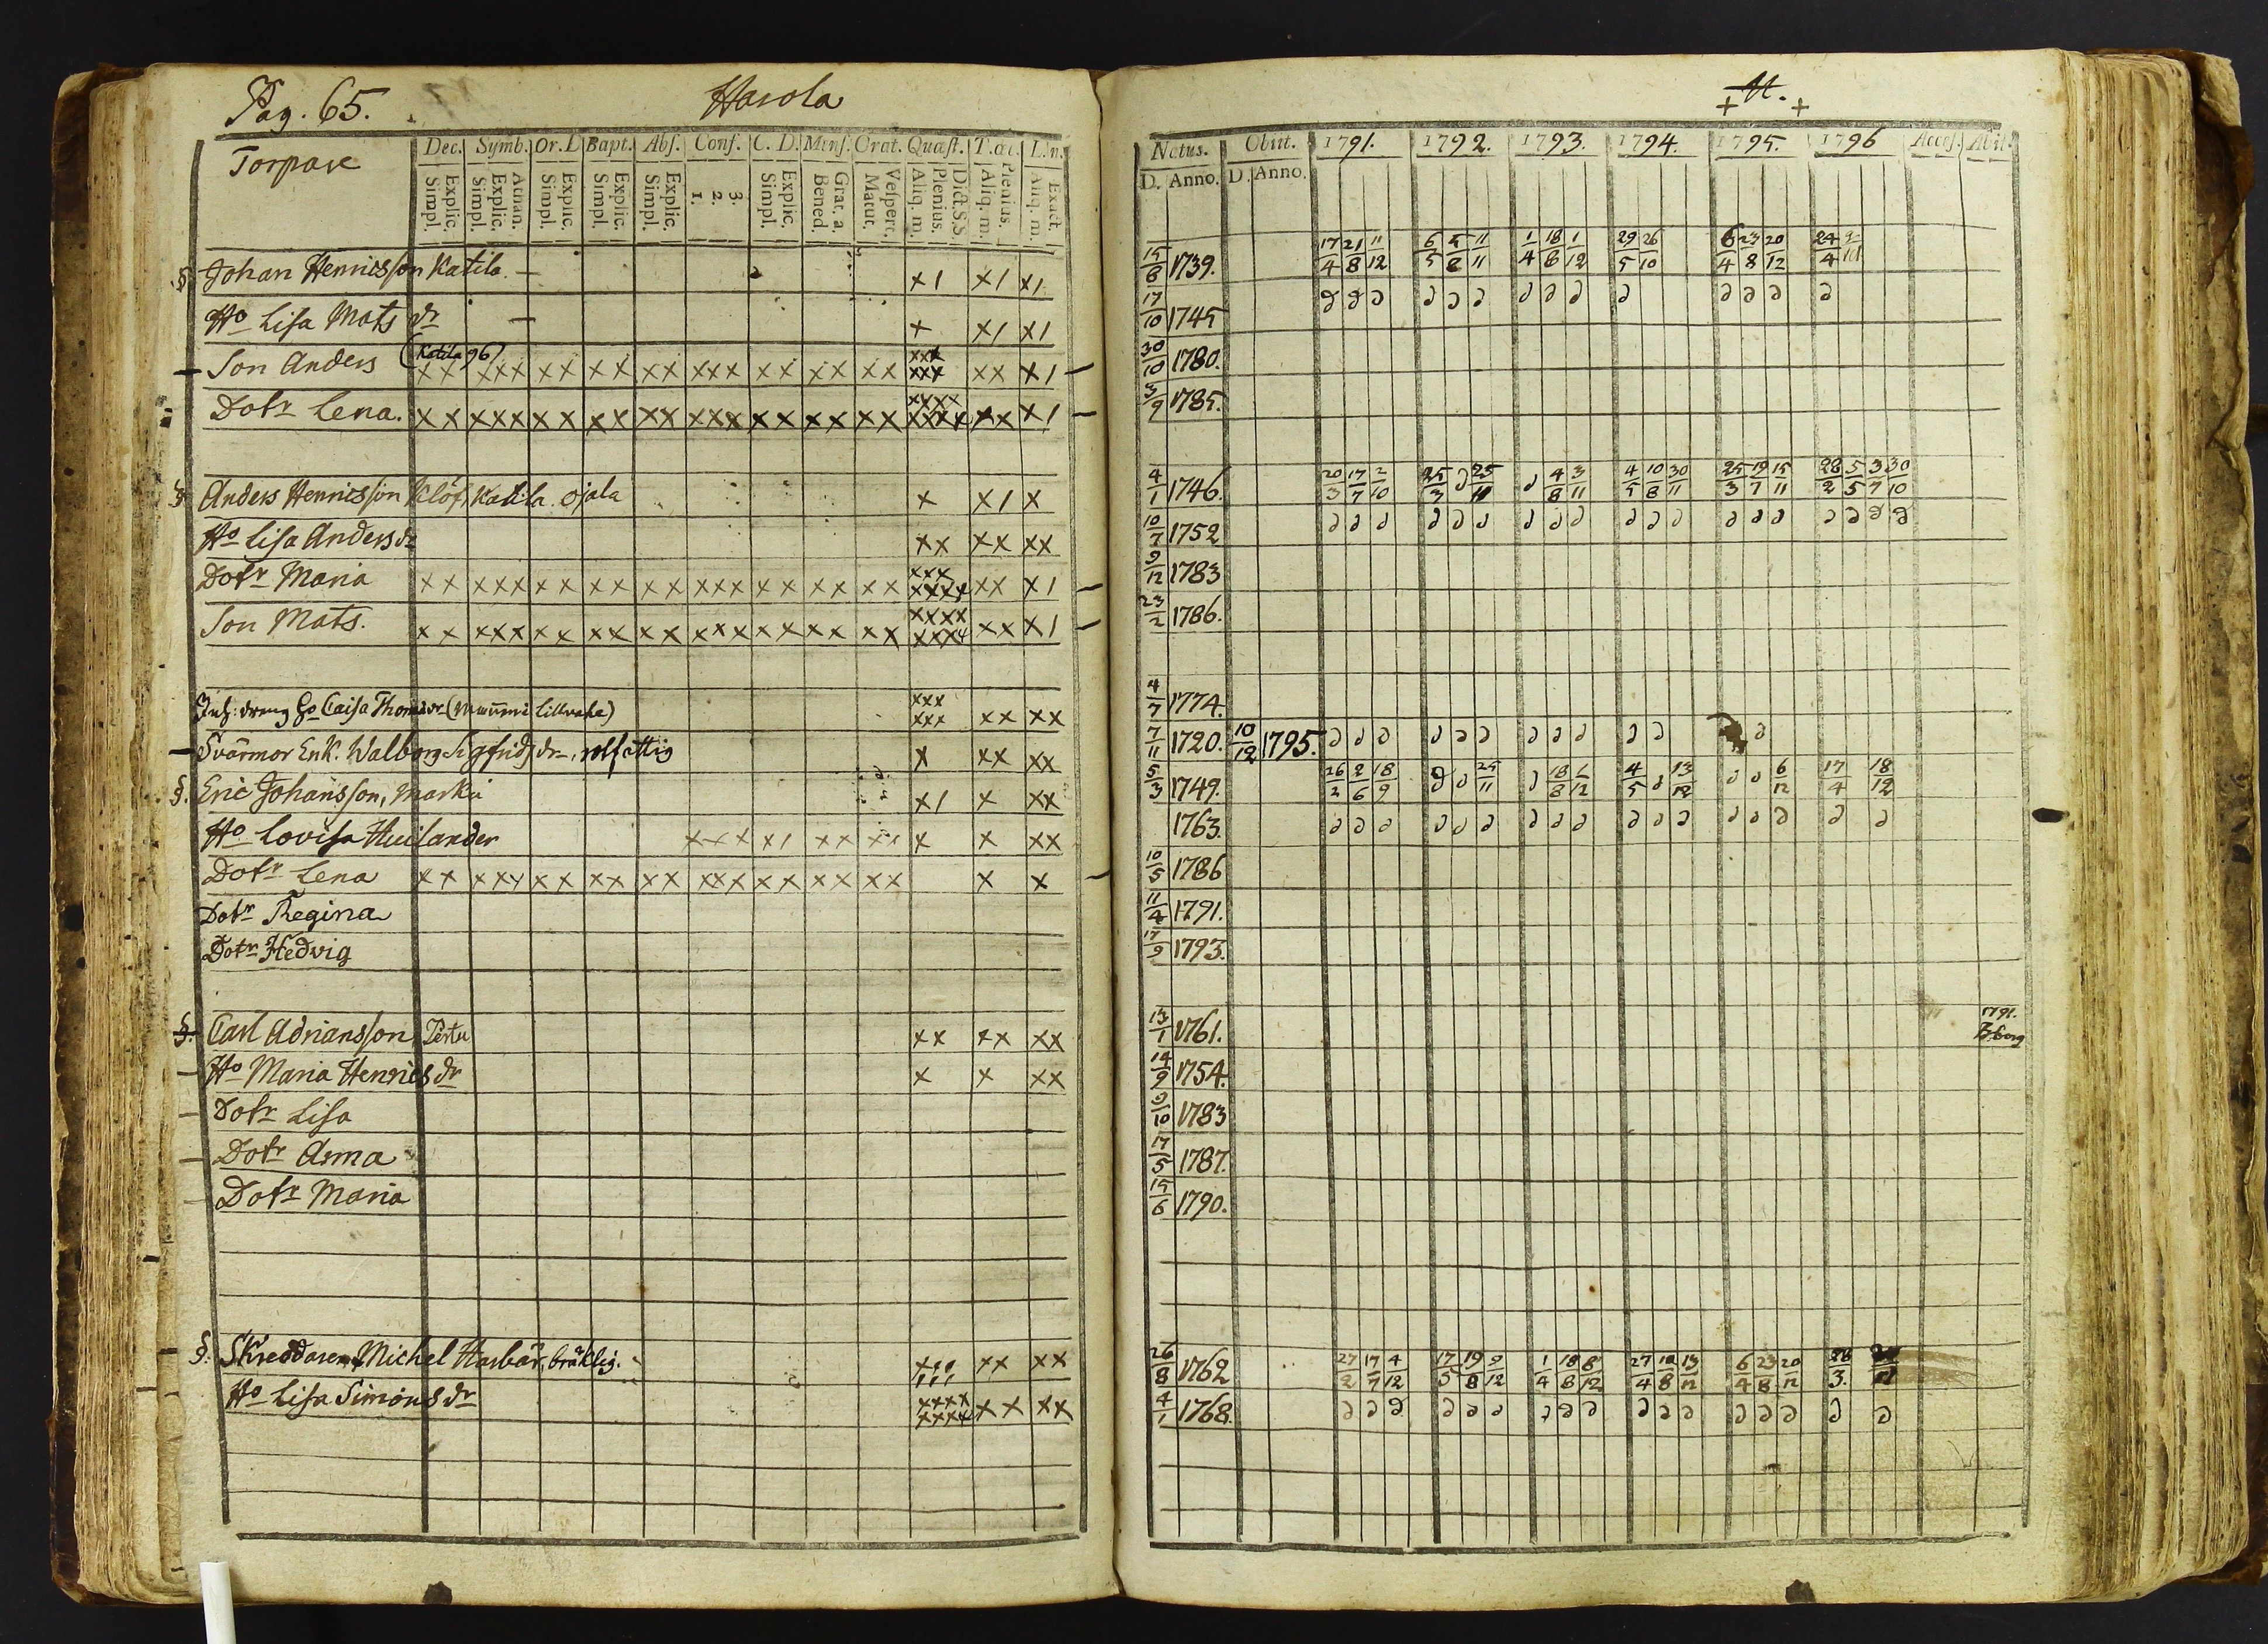 Pag. 65. Harola
Torpare
Dec. Symb. Or. D Bapt. Abs. Conf. C. D. Mens. Orat. Quæst. T. L. n.
Explic. Simpl. Athan. Explic. Simpl. Explic. Simpl. Explic. Simpl. Explic. Simpl. 3. 2. 1. Explic. Simpl. Grat. a. Bened. Vesper. Matut. Dict. S.S. Plenius. Aliq. m. Plenius. Aliq. m. Exact. Aliq. m.
§ Johan Henricsson Katila. x1 x1 x1
Ho Lisa Mats dr x x1 x1
Son Anders (Katila 96) xx xxx xx xx xx xxx xx xx xx xxx xxx xx x1
Dotr Lena. xx xxx xx xx xx xxx xx xx xx xxxx xxxx xx x1
§ Anders Henricsson Klöf, Katila. Ojala x x1 x
Ho Lisa Anders dr xx xx xx
Dotr Maria xx xxx xx xx xx xxx xx xx xx xxx xxxx xx x1
Son Mats. xx xxx xx xx xx xxx xx xx xx xxxx xxxx xx x1
Caisa xxx xxx xx xx
Svärmor Enk. Walborg Sigfrids dr x xx xx
§. Eric Johansson, Marku x1 x xx
Ho Lovisa Huilander xxx x1 xx xx x x xx
Dotr Lena xx xxx xx xx xx xxx xx xx xx x x
Dotr Regina
Dotr Hedvig
§. Carl Adriansson Pertu xx xx xx
Ho Maria Henrics dr x x xx
Dotr Lisa
Dotr Anna
Dotr Maria
§. Skreddaren Michel Hasbär, bräklig. xx xx
Ho Lisa Simons dr xxxx xxxx xx xx
Natus. Obiit. 1791. 1792. 1793. 1794. 1795. 1796 Access. Abit.
D. Anno. D. Anno.
15/8 1739. 17/4 21/8 11/12 6/5 5/8 11/11 1/4 18/8 1/12 29/5 26/10 6/4 23/8 20/12 24/4
17/10 1745
30/10 1780.
3/9 1785.
4/1 1746. 20/3 17/7 2/10 25/3 4/8 3/11 4/5 10/8 30/11 25/3 19/7 15/11 28/2 5/5 3/7 30/10
10/7 1752
9/12 1783
23/2 1786.
4/7 1774.
7/11 1720. 10/12 1795.
5/3 1749. 26/2 2/6 18/9 25/11 18/8 1/12 4/5 13/12 6/12 17/4 18/12
1763.
10/5 1786
11/4 1791.
17/9 1793.
13/1 1761. 1791.
14/9 1754.
9/10 1783
17/5 1787.
15/6 1790.
26/8 1762 27/2 17/7 4/12 17/5 19/8 9/12 1/4 18/8 8/12 27/4 18/8 13/12 6/4 23/8 20/12
4/1 1768.